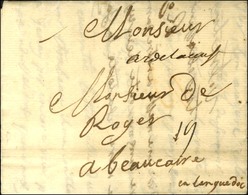 Monsieur
Monsieur De
Roger 19
a beaucaire
en languedoc